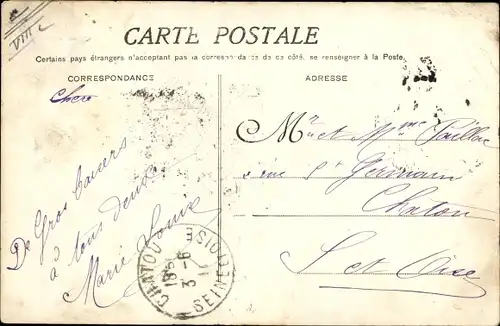 VIII c
CARTE POSTALE
Certains pays étrangers n'acceptant pas la correspondance de ce côté, se renseigner à la Poste.
CORRESPONDANCE
ADRESSE
De Gros baisers
à tous deux
Marie Louise
Mr et Mme
rue St Germain
Chatou
S et Oise
CHATOU
3 -6
SEINE ET OISE